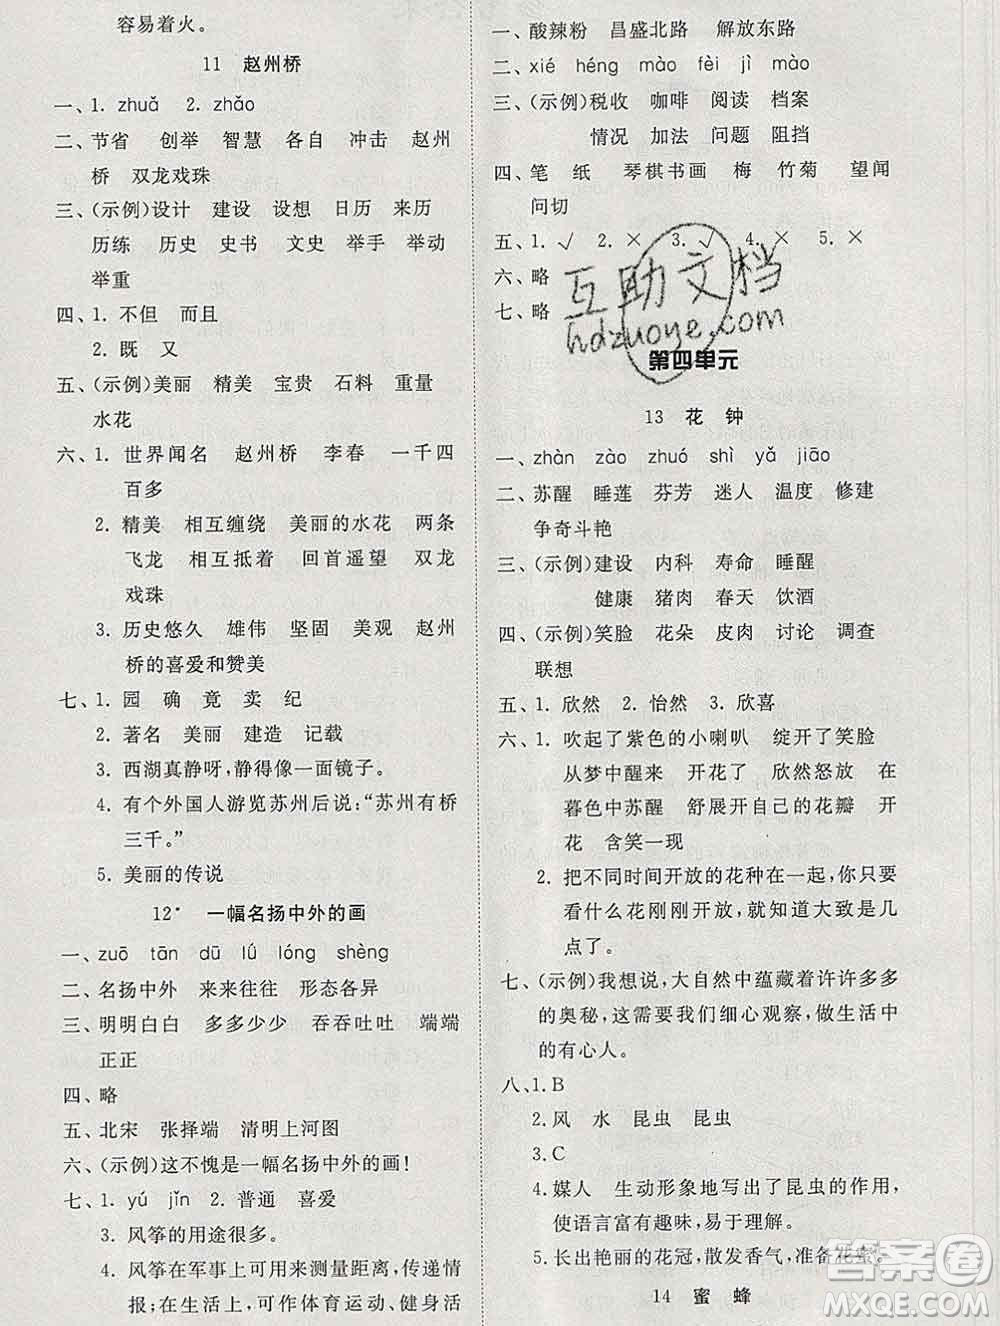 容易着火。
11 赵州桥
一、1. zhuǎ 2. zhǎo
二、节省 创举 智慧 各自 冲击 赵州
桥 双龙戏珠
三、(示例)设计 建设 设想 日历 来历
历练 历史 史书 文史 举手 举动
举重
四、1. 不但 而且
2. 既 又
五、(示例)美丽 精美 宝贵 石料 重量
水花
六、1. 世界闻名 赵州桥 李春 一千四
百多
2. 精美 相互缠绕 美丽的水花 两条
飞龙 相互抵着 回首遥望 双龙
戏珠
3. 历史悠久 雄伟 坚固 美观 赵州
桥的喜爱和赞美
七、1. 园 确 竟 卖 纪
2. 著名 美丽 建造 记载
3. 西湖真静呀,静得像一面镜子。
4. 有个外国人游览苏州后说:“苏州有桥
三千。”
5. 美丽的传说
12* 一幅名扬中外的画
一、zuō tān dū lǘ lóng shèng
二、名扬中外 来来往往 形态各异
三、明明白白 多多少少 吞吞吐吐 端端
正正
四、略
五、北宋 张择端 清明上河图
六、(示例)这不愧是一幅名扬中外的画!
七、1. yú jǐn 2. 普通 喜爱
3. 风筝的用途很多。
4. 风筝在军事上可用来测量距离,传递情
报;在生活上,可作体育运动、健身活
一、酸辣粉 昌盛北路 解放东路
二、xié héng mào fèi jì mào
三、(示例)税收 咖啡 阅读 档案
情况 加法 问题 阻挡
四、笔 纸 琴棋书画 梅 竹菊 望闻
问切
五、1. √ 2. × 3. √ 4. × 5. ×
六、略
七、略
互助文档
hdzuoye.com
第四单元
13 花 钟
一、zhàn zào zhuó shì yǎ jiāo
二、苏醒 睡莲 芬芳 迷人 温度 修建
争奇斗艳
三、(示例)建设 内科 寿命 睡醒
健康 猪肉 春天 饮酒
四、(示例)笑脸 花朵 皮肉 讨论 调查
联想
五、1. 欣然 2. 怡然 3. 欣喜
六、1. 吹起了紫色的小喇叭 绽开了笑脸
从梦中醒来 开花了 欣然怒放 在
暮色中苏醒 舒展开自己的花瓣 开
花 含笑一现
2. 把不同时间开放的花种在一起,你只要
看什么花刚刚开放,就知道大致是几
点了。
七、(示例)我想说,大自然中蕴藏着许许多多
的奥秘,这需要我们细心观察,做生活中
的有心人。
八、1. B
2. 风 水 昆虫 昆虫
3. C
4. 媒人 生动形象地写出了昆虫的作用,
使语言富有趣味,易于理解。
5. 长出艳丽的花冠,散发香气,准备花蜜。
14 蜜 蜂
答案圈
MXQE.COM